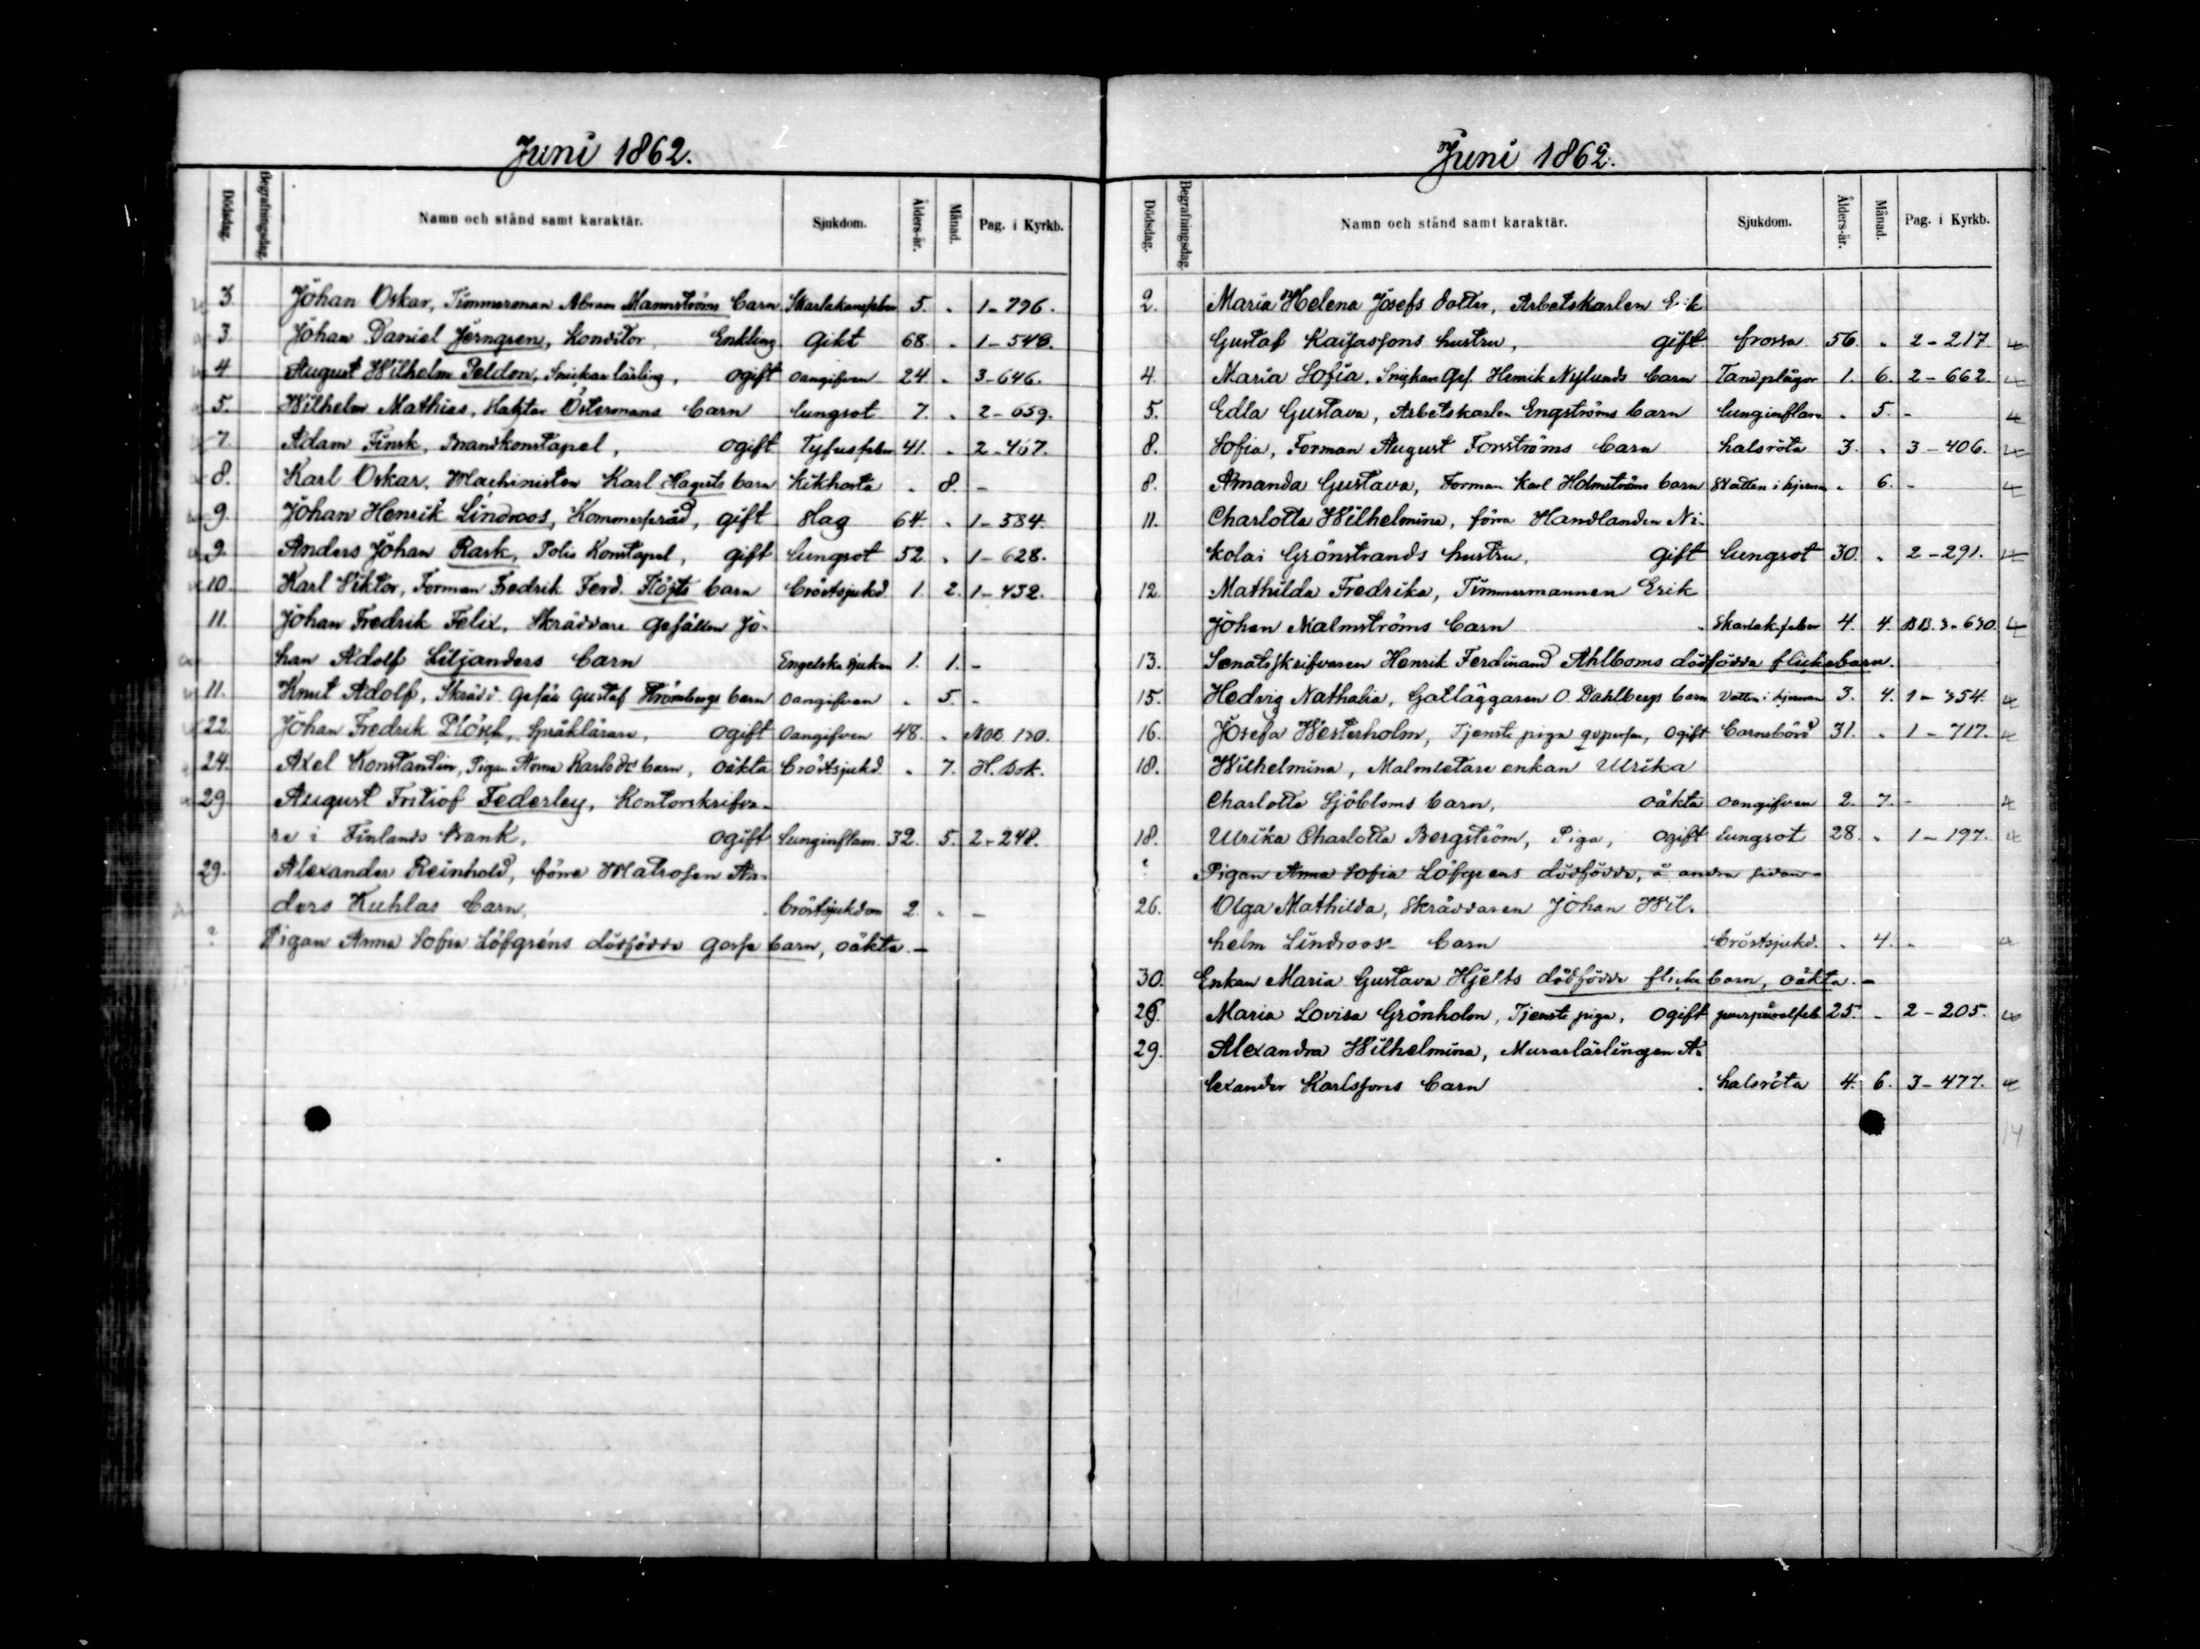 Juni 1862.
Dödsdag. Begrafningsdag. Namn och stånd samt karaktär. Sjukdom. Ålders-år. Månad. Pag. i Kyrkb.
3. Johan Oskar, Timmerman Abram Mannströms barn Skarlakansfeber 5. „ 1-796.
3. Johan Daniel Jerngren, Konditor, Enkling Gikt 68. „ 1-548.
4. August Wilhelm Peldon, Snickar lärling, ogift oangifven 24. „ 3-646.
5. Wilhelm Mathias, Haktor Östermans barn lungsot 7. „ 2-659.
7. Adam Finsk, Brandkonstapel, ogift Tyfusfeber 41. „ 2-467.
8. Karl Oskar, Machinisten Karl Hagerts barn Kikhosta „ 8. -
9. Johan Henrik Lindroos, Kommerseråd, gift slag 64. „ 1-584.
9. Anders Johan Rask, Polis Konstapel, gift lungsot 52. „ 1-628.
10. Karl Viktor, Forman Fredrik Ferd. Flöjts barn bröstsjukd. 1. 2. 1-432.
11. Johan Fredrik Felix, Skräddare Gesällen Jo-
han Adolf Liljanders barn Engelska sjukan 1. 1. -
11. Knut Adolf, Skrädd. Gesäll Gustaf Strömbergs barn oangifven „ 5. -
22. Johan Fredrik Plösch, Språklärare, ogift oangifven 48. „ NOB 120.
24. Axel Konstantin, Pigan Anna Karlsdtr barn, oäkta bröstsjukd. „ 7. H. Bok.
29. August Fritiof Federley, Kontorskrifva-
re i Finlands Bank, ogift lunginflam. 32. 5. 2-248.
29. Alexander Reinhold, förre Matrosen An-
ders Kuhlas barn, bröstsjukdom 2. „ -
? Pigan Anna Sofia Löfgréns dödfödda gosse barn, oäkta. -
Juni 1862.
Dödsdag. Begrafningsdag. Namn och stånd samt karaktär. Sjukdom. Ålders-år. Månad. Pag. i Kyrkb.
2. Maria Helena Josefs dotter, Arbetskarlen Erik
Gustaf Kaijassons hustru, gift frossa 56. „ 2-217.
4. Maria Sofia, Snickar Ges. Henrik Nylunds barn Tandplågor 1. 6. 2-662.
5. Edla Gustava, Arbetskarlen Engströms barn lunginflam „ 5. -
8. Sofia, Forman August Forsströms barn halsröta 3. „ 3-406.
8. Amanda Gustava, Forman Karl Holmströms barn Vatten i hjernan „ 6. -
11. Charlotta Wilhelmina, förra Handlanden Ni-
kolai Grönstrands hustru, gift lungsot 30. „ 2-291.
12. Mathilda Fredrika, Timmermannen Erik
Johan Malmströms barn Skarlak.feber 4. 4. BB. 3-630.
13. Senatsskrifvaren Henrik Ferdinand Ahlboms dödfödda flickebarn.
15. Hedvig Nathalia, Gatläggaren O. Dahlbergs barn Vatten i hjernan 3. 4. 1-354.
16. Josefa Westerholm, Tjenste piga, ogift barnsbörd 31. „ 1-717.
18. Wilhelmina, Malmletare enkan Ulrika
Charlotta Sjöbloms barn, oäkta oangifven 2. 7. -
18. Ulrika Charlotta Bergström, Piga, ogift lungsot 28. „ 1-197.
? Pigan Anna Sofia Löfgrens dödfödda, å andra sidan -
26. Olga Mathilda, Skräddaren Johan Wil-
helm Lindroos barn bröstsjukd. „ 4. -
30. Enkan Maria Gustava Hjelts dödfödda flicka barn, oäkta. -
26. Maria Lovisa Grönholm, Tjenste piga, ogift puerpuralfeb. 25. „ 2-205.
29. Alexandra Wilhelmina, Murarlärlingen A-
lexander Karlssons barn halsröta 4. 6. 3-477.
14